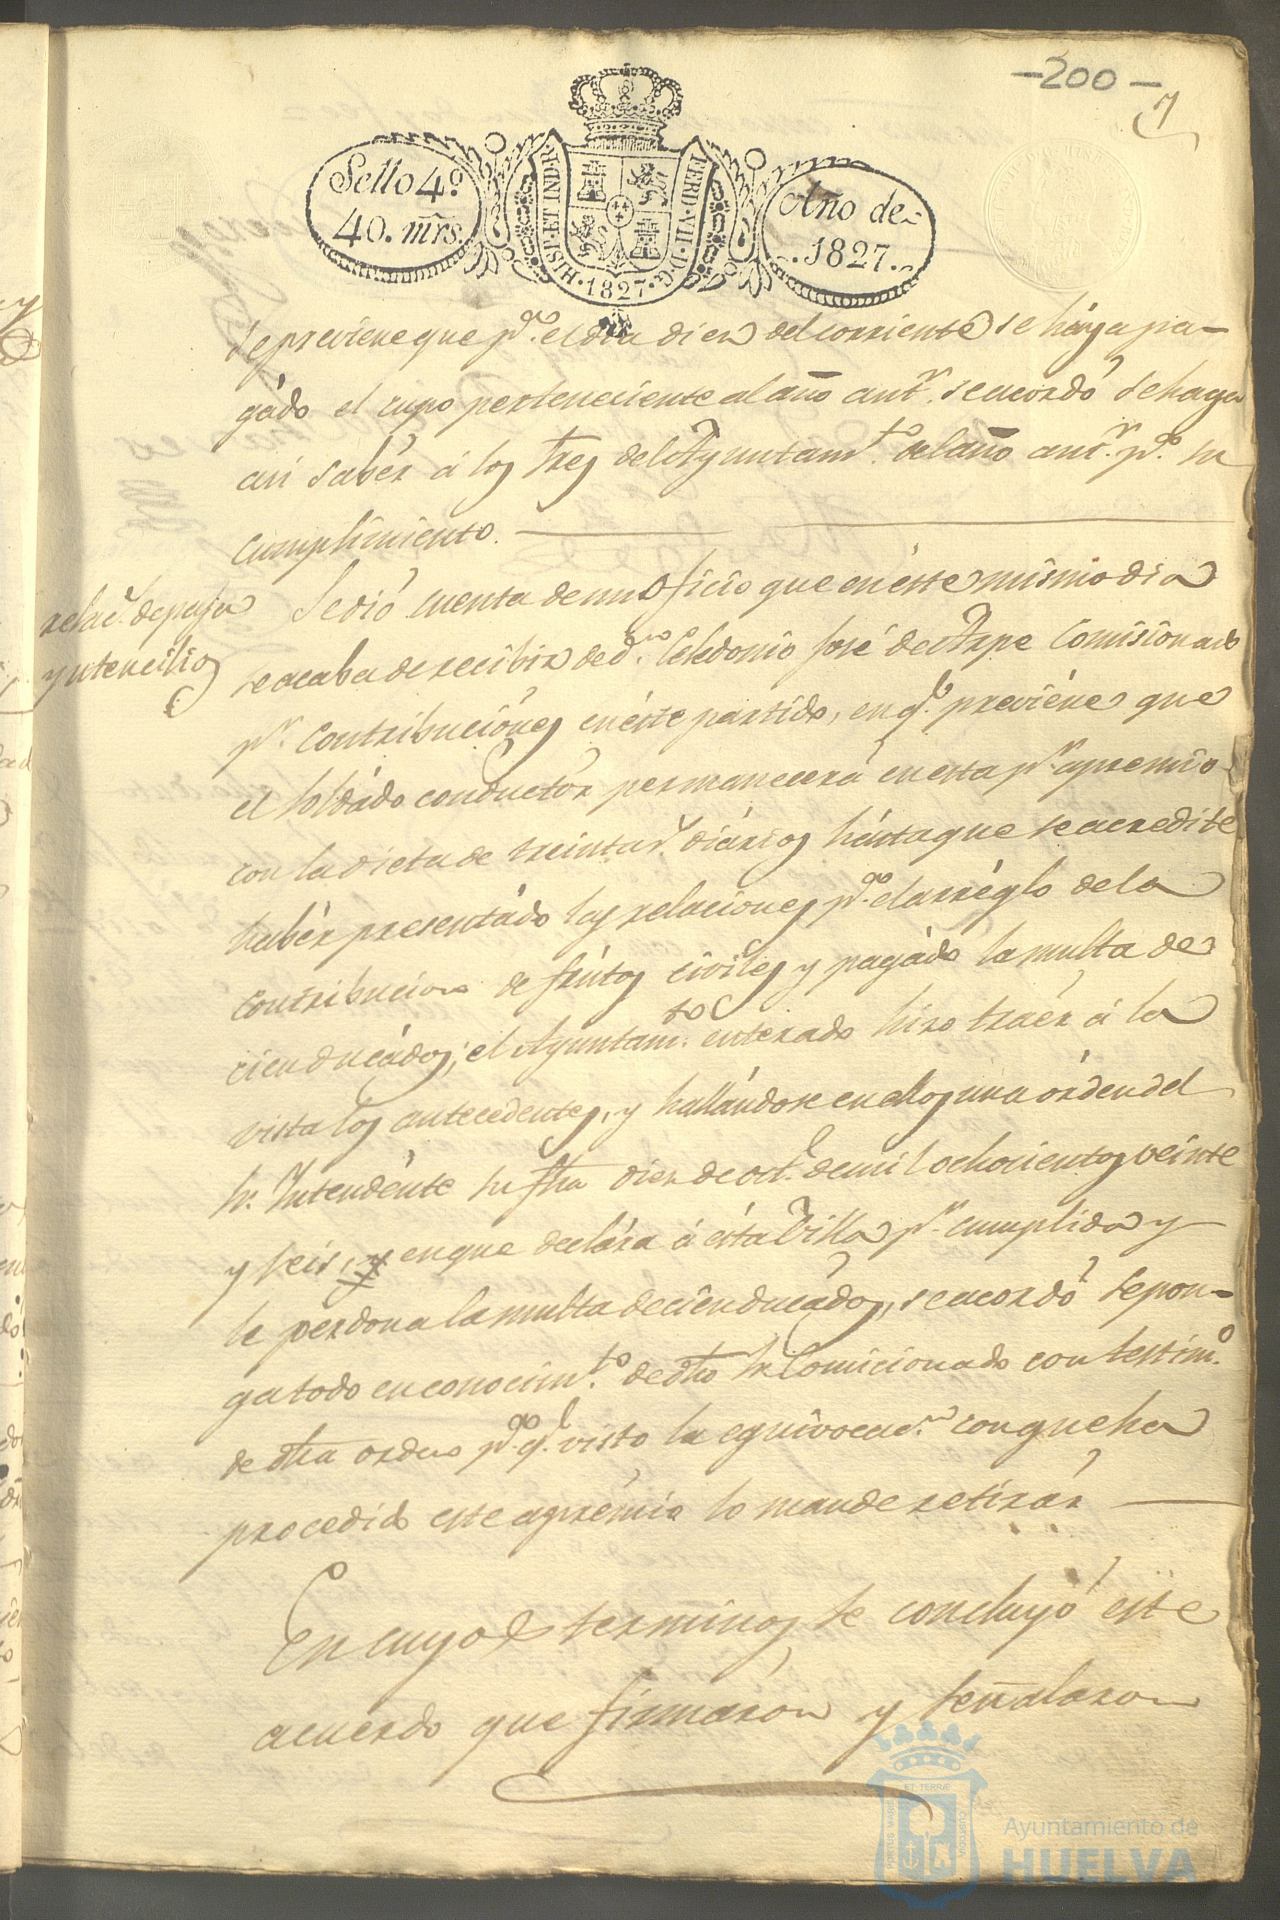 -200-
7
Sello 4º
40. mrs.
HISP. ET IND. R.
FERD. VII. D. G.
1827
Año de
1827.
se previene que pª. el dia diez del corriente se haya pa-
gádo el cupo perteneciente al año antr. se acordó se haga
asi sabér á los Sres del Ayuntamto. del año antr. pª. su
cumplimiento.
relac. de paja
y utencilios
Se dió cuenta de un Oficio que en éste mismo dia
se acaba de recibir de dn. Celedonio José de Arpe Comisionado
pr. Contribuciónes en éste partido, en q. previéne que
el soldádo conductór permanecerá en esta pr. apremio
con la dieta de treinta r. diários hásta que se acredite
habér presentádo las relaciones pª. el arréglo de la
Contribucion de frútos civiles y pagádo la multa de
cien ducádos; el Ayuntamto. enterado hizo traér á la
vista los antecedentes, y hallándose en ellos una órden del
Sr. Intendénte su fha diez de oct. de mil ochocientos veinte
y seis, y en que declára á ésta Villa pr. cumplida y
le perdona la multa de cien ducádos, se acordó se pon-
ga todo en conocimto. de dho Sr. Comicionado con testimº.
de dha orden pª. q. visto la equivocacn. con que ha
procedido este aprémio lo mande retirár
En cuyos terminos se concluyó éste
acuerdo que firmáron y señalaron
PORTUS MARIS ET TERRAE CUSTODIA
Ayuntamiento de
HUELVA